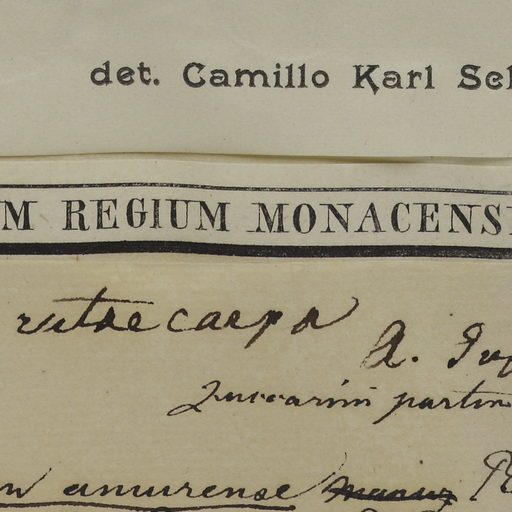 det. Camillo Karl Sch
M REGIUM MONACENS
vitae carpa
A. Jup
Zuccarini partim
n amurense